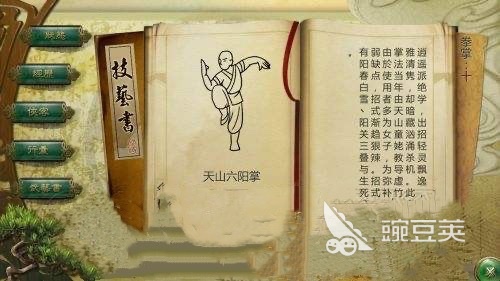 狀態
俠客
行囊
技藝書
天山六阳掌
拳掌·十
逍遥派绝学，出招轻灵飘逸，
雅清隽，却暗藏凶涌杀机。此
掌法当年由天山童姥教导虚竹
由於使用者多为女子，为弥补
弱缺点，招式渐趋狠辣。招式
有阳春白雪、阳关三叠与生死
豌豆荚